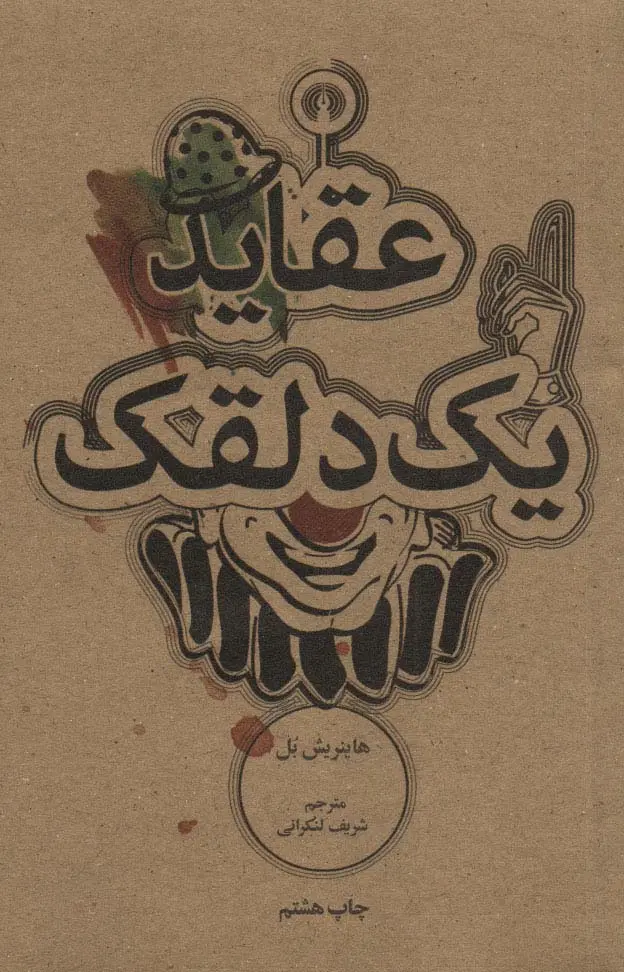 عقاید
یک دلقک
هاینریش بُل
مترجم
شریف لنکرانی
چاپ هشتم